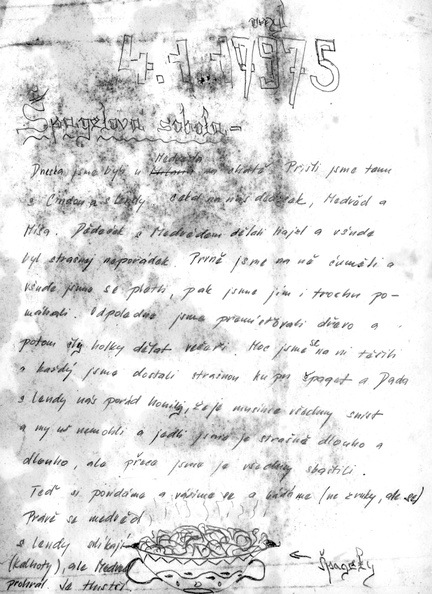 4.1.1975
Špagetová sobota -
Dneska jsme byli u Medvěda na chatě. Přišli jsme tam
s Čindou a s Lendy čekal na nás dědeček, Medvěd a
Míša. Dědeček s Medvědem dělali hajzl a všude
byl strašnej nepořádek. Prvně jsme na ně čuměli a
všude jsme se pletli, pak jsme jim i trochu po-
máhali. Odpoledne jsme přemisťovali dřevo a
potom šly holky dělat večeři. Moc jsme se na ni těšili
a každý jsme dostali strašnou kupu špaget a Dada
s Lendy nás pořád honily, že je musíme všechny sníst
a my už nemohli a jedli jsme je strašně dlouho a
dlouho, ale přece jsme je všechny sbaštili.
Teď si povídáme a vaříme se a (ne zvuky, ale se)
Právě se medvěd
s Lendy svlíkají
(kalhoty), ale Medvěd
prohrál. Je tlustší.
← Špagetky